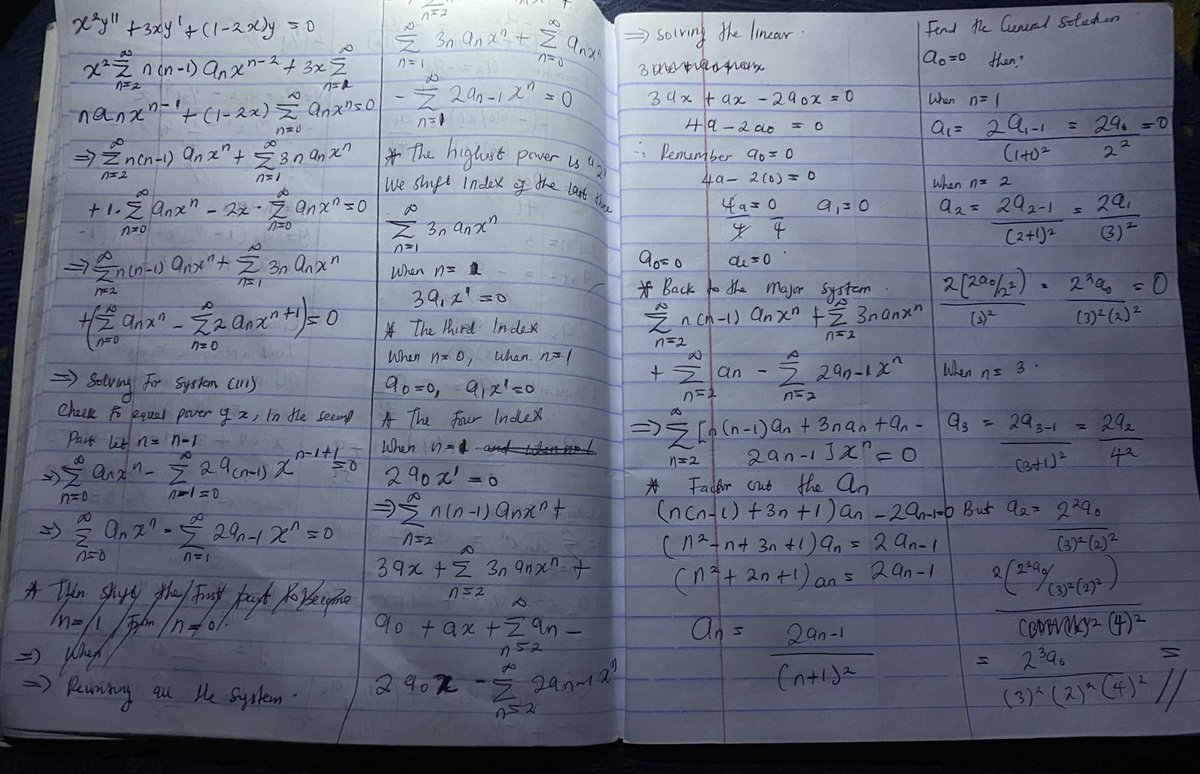 x²y'' + 3xy' + (1-2x)y = 0
x² ∞Σn=2 n(n-1) aₙxⁿ⁻² + 3x ∞Σn=1
naₙxⁿ⁻¹ + (1-2x) ∞Σn=0 aₙxⁿ=0
⇒ ∞Σn=2 n(n-1) aₙxⁿ + ∞Σn=1 3n aₙxⁿ
+1· ∞Σn=0 aₙxⁿ - 2x · ∞Σn=0 aₙxⁿ=0
⇒ ∞Σn=2 n(n-1) aₙxⁿ + ∞Σn=1 3n aₙxⁿ
+( ∞Σn=0 aₙxⁿ - ∞Σn=0 2 aₙxⁿ⁺¹) = 0
⇒ Solving for System (iii)
Check for equal power of x, in the second
Part let n = n-1
⇒ ∞Σn=0 aₙxⁿ - ∞Σn-1=0 2a(n-1) xⁿ⁻¹⁺¹ = 0
⇒ ∞Σn=0 aₙxⁿ - ∞Σn=1 2aₙ₋₁ xⁿ = 0
* Then shift the first part to become
n=1 from n=0.
⇒ when
⇒ Rewriting all the System.
n=2
∞Σn=1 3n aₙxⁿ + ∞Σn=0 aₙxⁿ
- ∞Σn=1 2aₙ₋₁ xⁿ = 0
* The highest power is a₂
We shift Index of the last three
∞Σn=1 3n aₙxⁿ
When n= 1
3a₁x' = 0
* The third Index
When n=0, when n=1
a₀=0, a₁x'=0
* The four Index
When n=1 and when n=1
2a₀x' = 0
⇒ ∞Σn=2 n(n-1) aₙxⁿ +
3ax + ∞Σn=2 3n aₙxⁿ +
a₀ + ax + ∞Σn=2 aₙ -
2a₀x - ∞Σn=2 2aₙ₋₁xⁿ
⇒ Solving the linear.
3ax + ax - 2a₀x = 0
4a - 2a₀ = 0
∴ Remember a₀ = 0
4a - 2(0) = 0
4a/4 = 0/4 a₁=0
a₀=0 a₁=0
* Back to the major system.
∞Σn=2 n(n-1) aₙxⁿ + ∞Σn=2 3naₙxⁿ
+ ∞Σn=2 aₙ - ∞Σn=2 2aₙ₋₁xⁿ
⇒ ∞Σn=2 [n(n-1)aₙ + 3naₙ + aₙ -
2aₙ₋₁]xⁿ = 0
* Factor out the aₙ
(n(n-1) + 3n + 1)aₙ - 2aₙ₋₁=0
(n² - n + 3n + 1)aₙ = 2aₙ₋₁
(n² + 2n + 1)aₙ = 2aₙ₋₁
aₙ = 2aₙ₋₁/(n+1)²
Find the General Solution
a₀=0 then:
When n=1
a₁= 2a₁₋₁/(1+1)² = 2a₀/2² = 0
When n= 2
a₂ = 2a₂₋₁/(2+1)² = 2a₁/(3)²
2[2a₀/2²]/(3)² = 2²a₀/(3)²(2)² = 0
When n= 3.
a₃ = 2a₃₋₁/(3+1)² = 2a₂/4²
But a₂= 2²a₀/(3)²(2)²
2(2²a₀/(3)²(2)²)/(4)²
= 2³a₀/(3)²(2)²(4)² = //